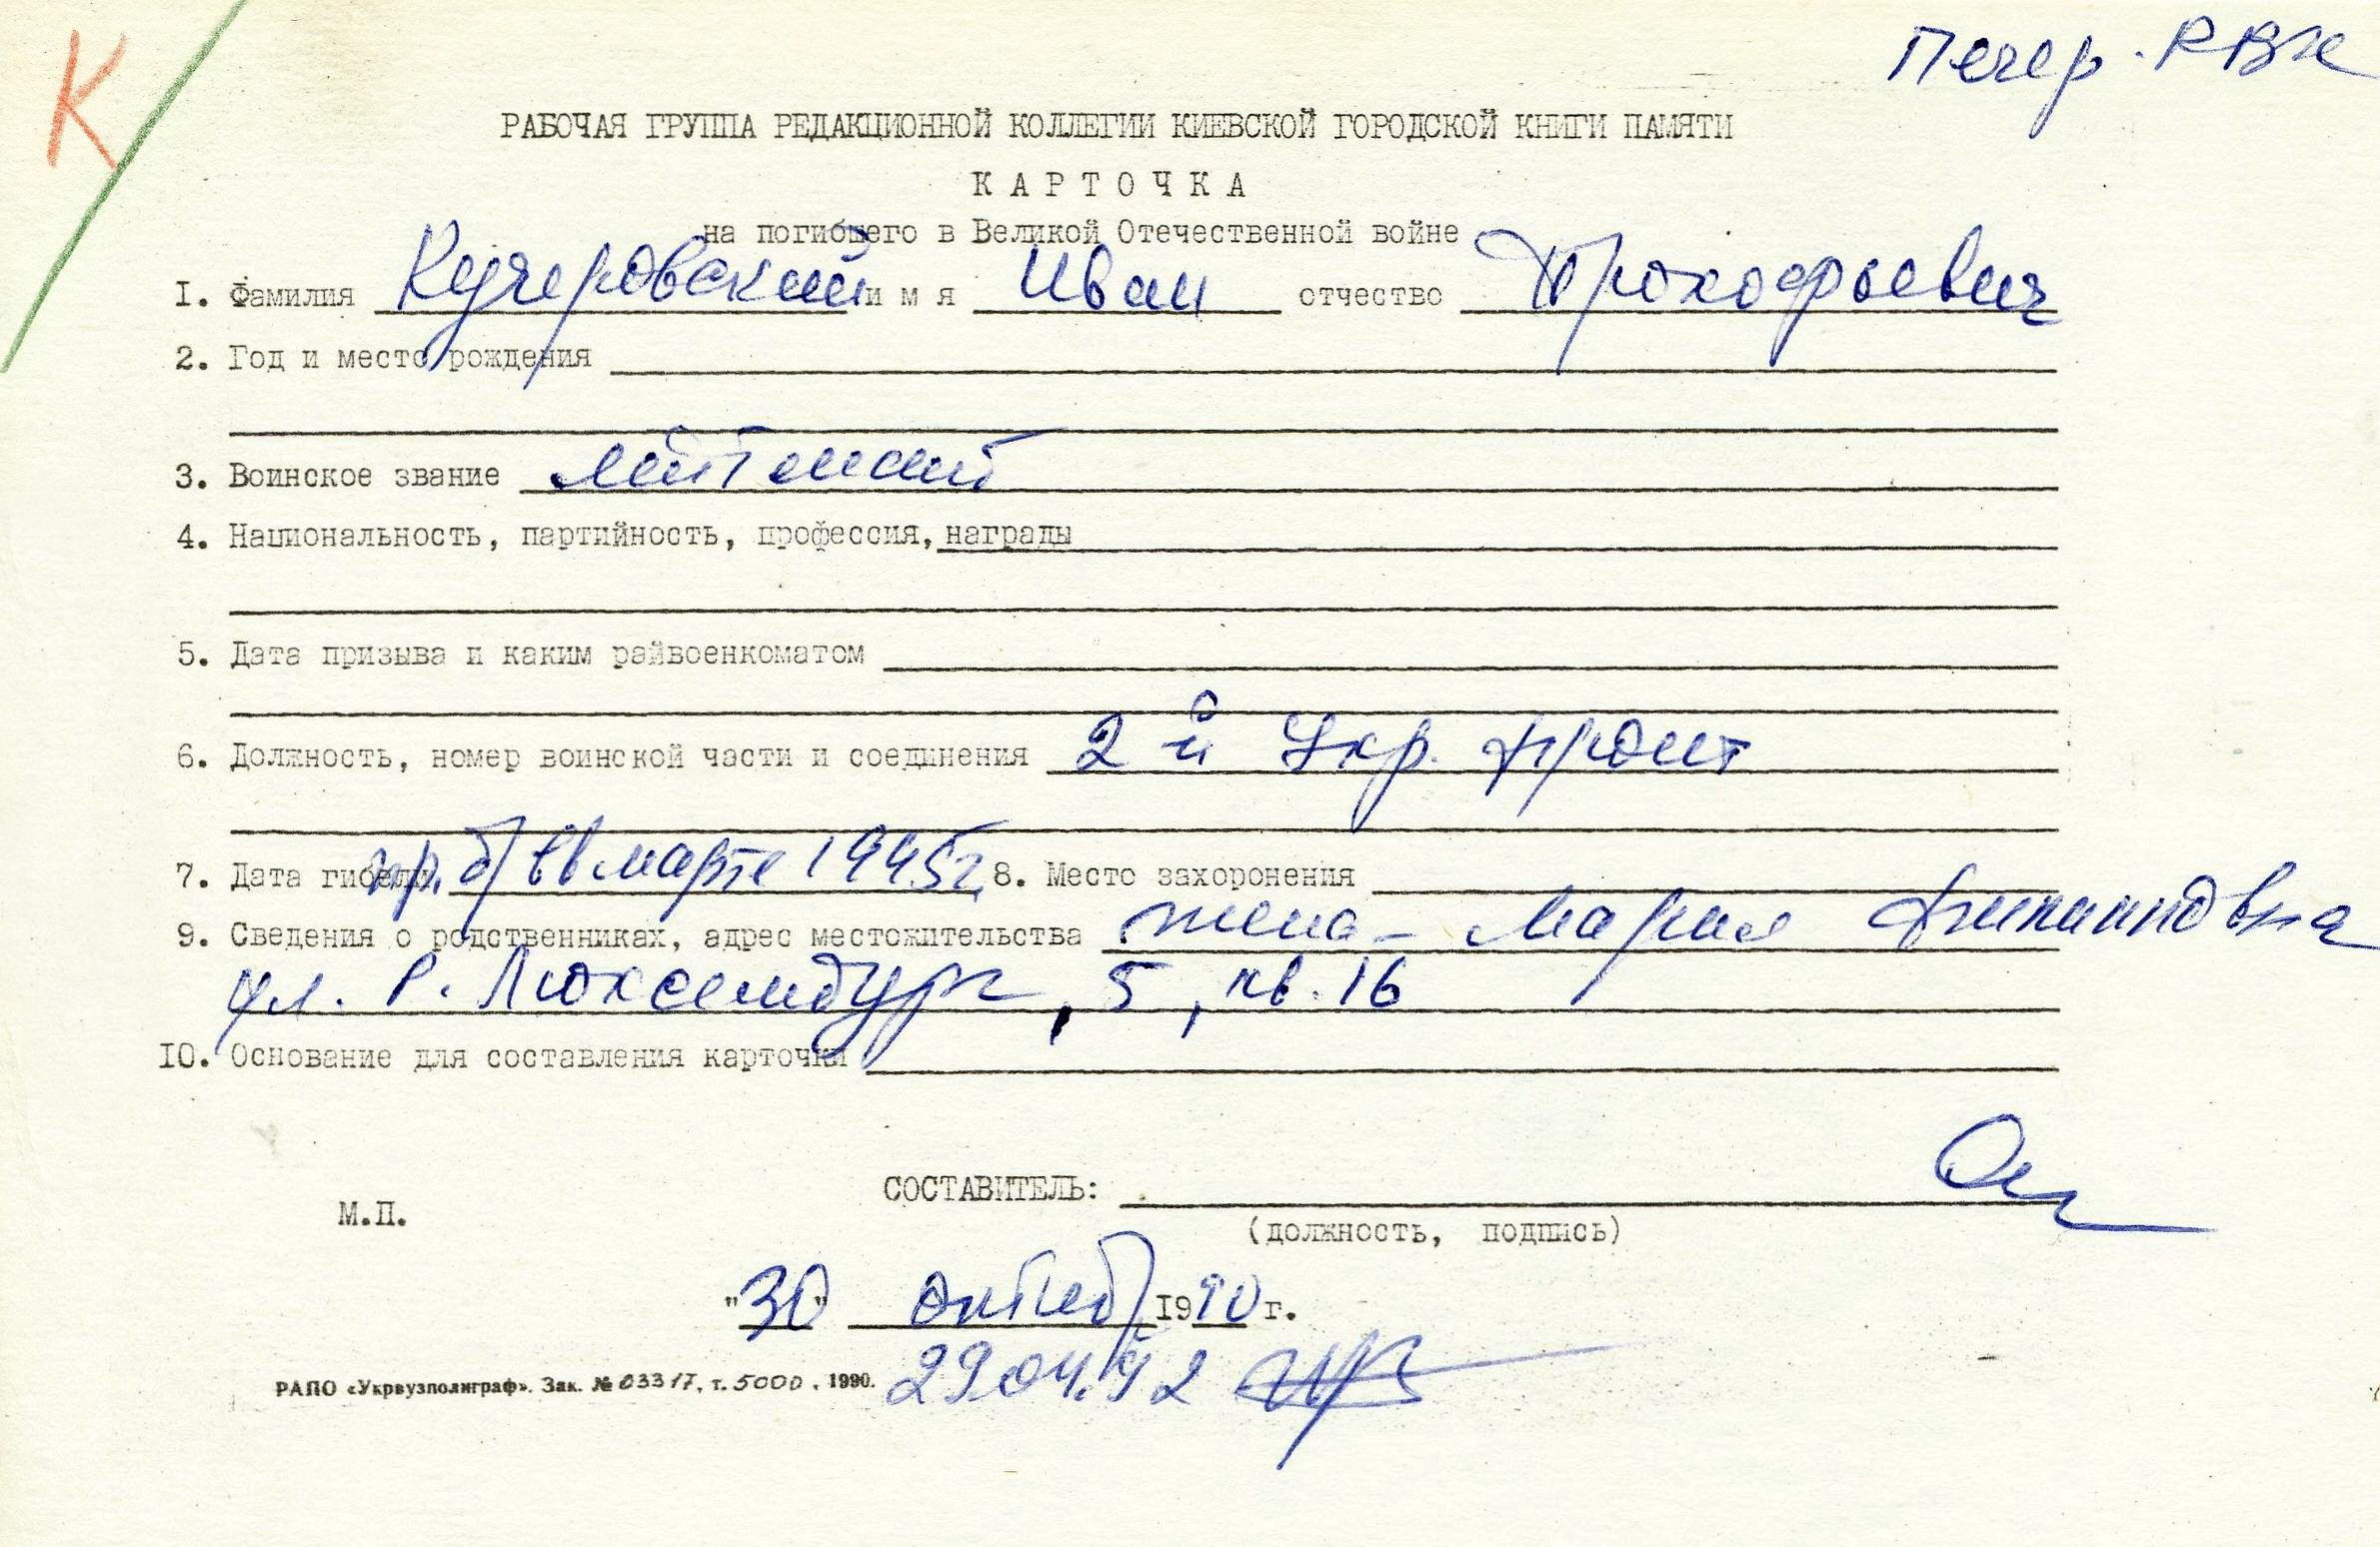 К
Печер. РВК
РАБОЧАЯ ГРУППА РЕДАКЦИОННОЙ КОЛЛЕГИИ КИЕВСКОЙ ГОРОДСКОЙ КНИГИ ПАМЯТИ
К А Р Т О Ч К А
на погибшего в Великой Отечественной войне
I. Фамилия Кучеровский и м я Иван отчество Прокофьевич
2. Год и место рождения
3. Воинское звание лейтенант
4. Национальность, партийность, профессия, награды
5. Дата призыва и каким райвоенкоматом
6. Должность, номер воинской части и соединения 2й Укр. фронт
7. Дата гибели пр. б/в в марте 1945г. 8. Место захоронения
9. Сведения о родственниках, адрес местожительства жена – Мария Филипповна
ул. Р. Люксембург, 5, кв. 16
IO. Основание для составления карточки
СОСТАВИТЕЛЬ:
М.П.
(должность, подпись)
"30" октяб 1990 г.
РАПО «Укрвузполиграф». Зак. № 03317, т. 5000. 1990.
29.04.92